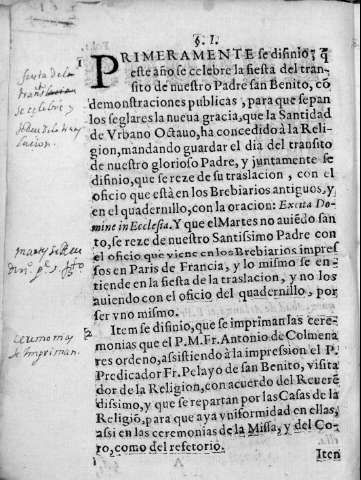 §. I.
PRIMERAMENTE se difinio; q̃
este año se celebre la fiesta del tran-
sito de nuestro Padre san Benito, cõ
demonstraciones publicas, para que sepan
los seglares la nueua gracia, que la Santidad
de Vrbano Octauo, ha concedido à la Reli-
gion, mandando guardar el dia del transito
de nuestro glorioso Padre, y juntamente se
difinio, que se reze de su traslacion, con el
oficio que està en los Brebiarios antiguos, y
en el quadernillo, con la oracion: Excita Do-
mine in Ecclesia. Y que el Martes no auiẽdo san
to, se reze de nuestro Santissimo Padre con
el oficio que viene en los Brebiarios impres
sos en Paris de Francia, y lo mismo se en-
tiende en la fiesta de la traslacion, y no los
auiendo con el oficio del quadernillo, por
ser vno mismo.
Item se difinio, que se impriman las cere-
monias que el P. M. Fr. Antonio de Colmena
res ordeno, assistiendo à la impression el P.
Predicador Fr. Pelayo de san Benito, visita
dor de la Religion, con acuerdo del Reuerẽ
dissimo, y que se repartan por las Casas de la
Religiõ, para que aya vniformidad en ellas,
assi en las ceremonias de la Missa, y del Co-
ro, como del refetorio.
Iten
A
1
fiesta de la
se celebre y
2
ceremonias
se impriman.